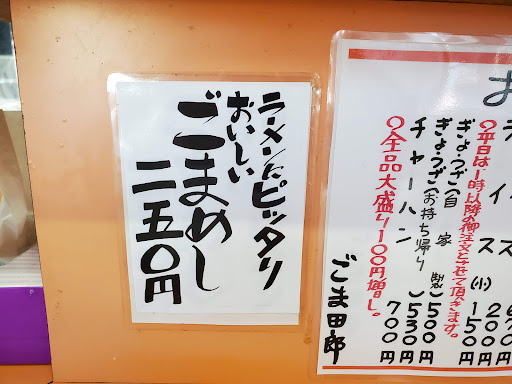 お
ライス(小)150円
◎平日は1時以降の御注文とさせて頂きます。
ぎょうざ(自家製)500円
ぎょうざ(お持ち帰り)530円
チャーハン 700円
◎全品大盛り100円増し。
ごま田郎
ラーメンにピッタリ
おいしい
ごまめし
二五〇円